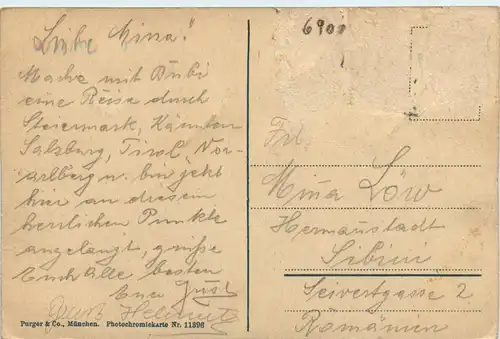 6900
Liebe Mina!
Mache mit Bubi
eine Reise durch
Steiermark, Kärnten
Salzburg, Tirol, Vor-
arlberg u. bin jetzt
hier an diesem
herrlichen Punkte
angelangt, grüße
Euch Alle bestens
Euer Just
Gruß Helmut
Purger & Co., München. Photochromiekarte Nr. 11396
Frl.
Mina Löw
Hermannstadt
Sibiu
Seivertgasse 2
Romänien